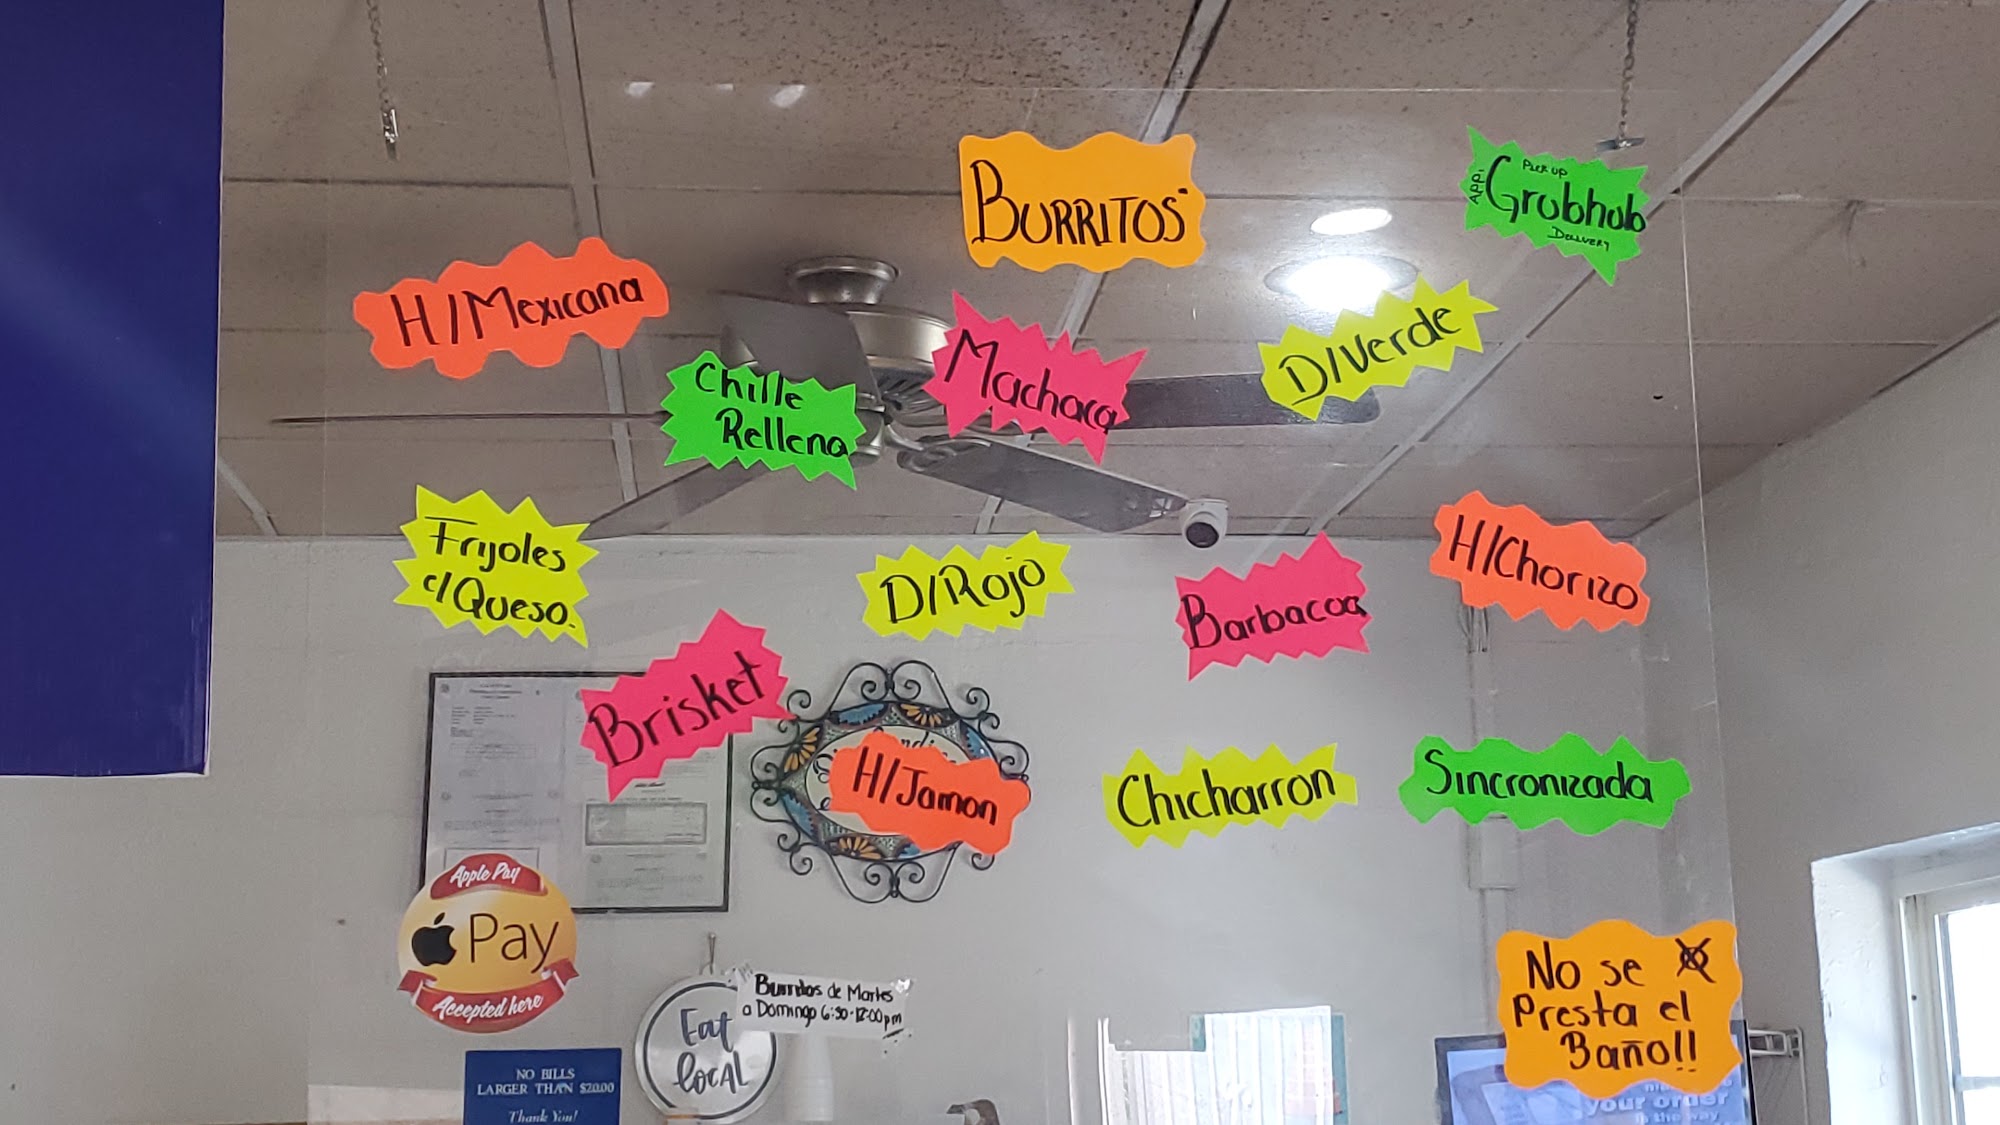 BURRITOS
APP:
PICK UP
Grubhub
DELIVERY
H/Mexicana
Machaca
D/Verde
Chille
Rellena
Frijoles
c/Queso.
D/Rojo
Barbacoa
H/Chorizo
Brisket
H/Jamon
Chicharron
Sincronizada
Apple Pay
Pay
Accepted here
Burritos de Martes
a Domingo 6:30-12:00pm
Eat
local
No se
Presta el
Baño!!
NO BILLS
LARGER THAN $20.00
Thank You!
your order
is the way